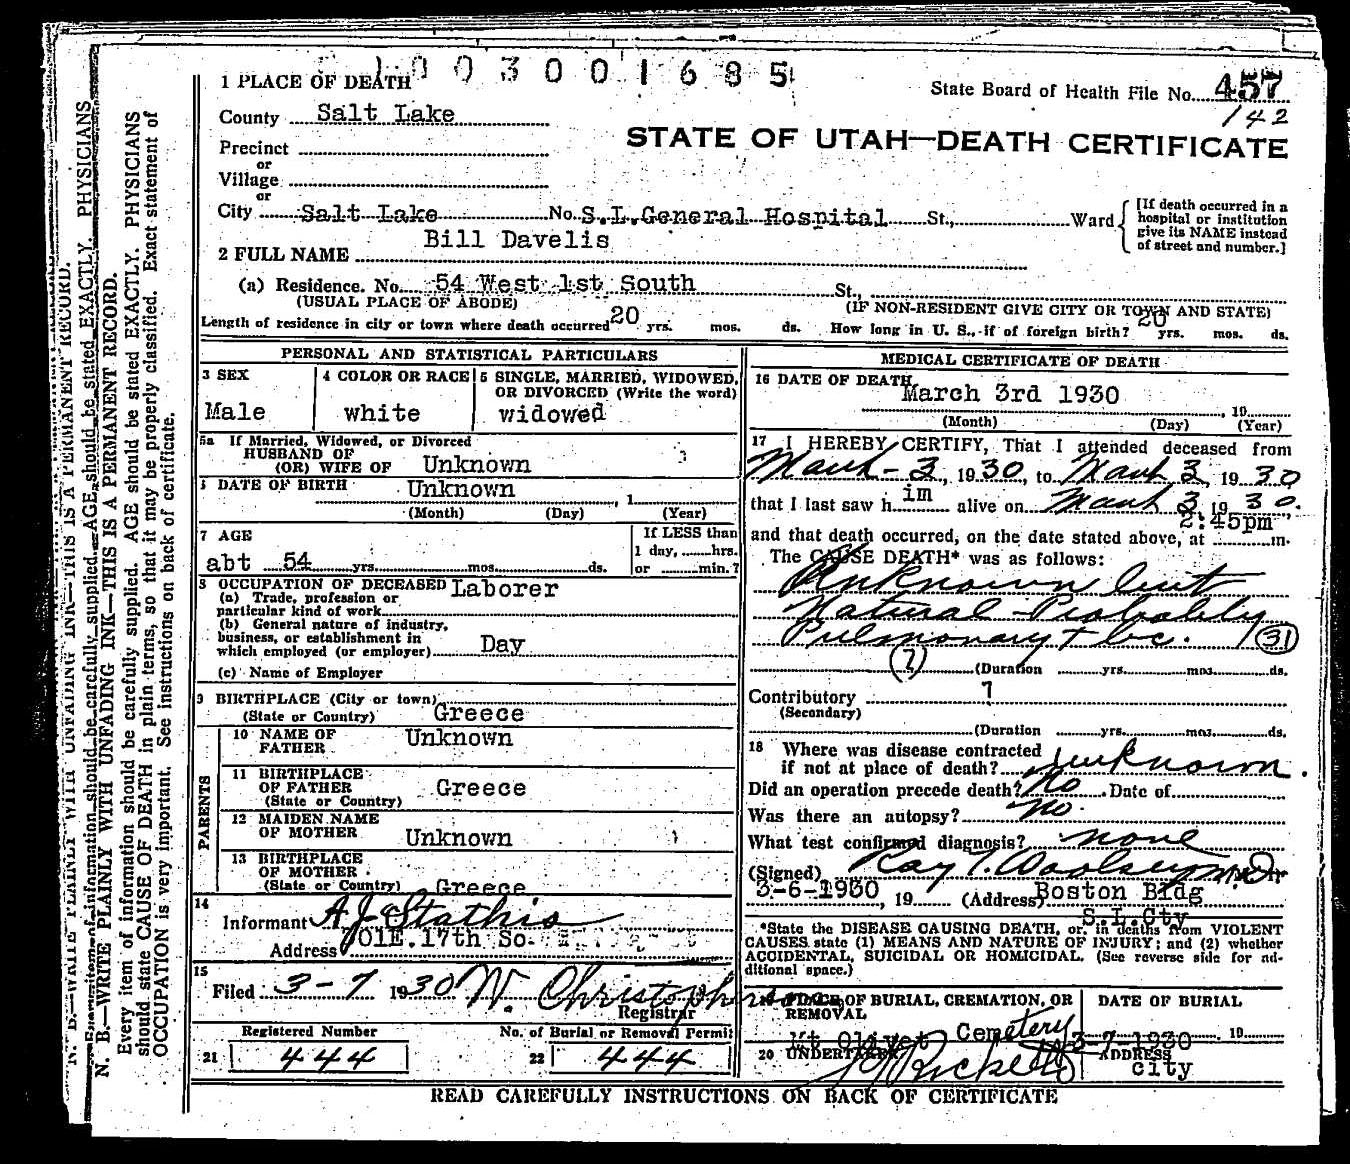 1003001685
1 PLACE OF DEATH
State Board of Health File No. 457
142
County Salt Lake
STATE OF UTAH—DEATH CERTIFICATE
Precinct
or
Village
or
City Salt Lake No. S.L.General Hospital St., Ward
[If death occurred in a
hospital or institution
give its NAME instead
of street and number.]
2 FULL NAME Bill Davelis
(a) Residence. No. 54 West 1st South St.,
(USUAL PLACE OF ABODE) (IF NON-RESIDENT GIVE CITY OR TOWN AND STATE)
Length of residence in city or town where death occurred 20 yrs. mos. ds. How long in U. S., if of foreign birth? 20 yrs. mos. ds.
PERSONAL AND STATISTICAL PARTICULARS
3 SEX
Male
4 COLOR OR RACE
white
5 SINGLE, MARRIED, WIDOWED,
OR DIVORCED (Write the word)
widowed
5a If Married, Widowed, or Divorced
HUSBAND OF
(OR) WIFE OF Unknown
DATE OF BIRTH Unknown , 1
(Month) (Day) (Year)
7 AGE
abt 54 yrs. mos. ds.
If LESS than
1 day, hrs.
or min.?
8 OCCUPATION OF DECEASED Laborer
(a) Trade, profession or
particular kind of work
(b) General nature of industry,
business, or establishment in
which employed (or employer) Day
(c) Name of Employer
9 BIRTHPLACE (City or town)
(State or Country) Greece
PARENTS
10 NAME OF
FATHER Unknown
11 BIRTHPLACE
OF FATHER Greece
(State or Country)
12 MAIDEN NAME
OF MOTHER Unknown
13 BIRTHPLACE
OF MOTHER
(State or Country) Greece
14
Informant A J Stathis
Address 701E.17th So.
15
Filed 3-7 1930 W. Christopherson
Registrar
Registered Number No. of Burial or Removal Permit
21 444 22 444
MEDICAL CERTIFICATE OF DEATH
16 DATE OF DEATH March 3rd 1930 , 19
(Month) (Day) (Year)
17 I HEREBY CERTIFY, That I attended deceased from
March - 3, 1930, to March 3, 1930
that I last saw him alive on March 3, 1930.
2:45pm
and that death occurred, on the date stated above, at m.
The CAUSE DEATH* was as follows:
Unknown but
Natural - Probably
Pulmonary tbc. (31)
(?) (Duration yrs. mos. ds.
Contributory ?
(Secondary)
(Duration yrs. mos. ds.
18 Where was disease contracted
if not at place of death? unknown.
Did an operation precede death? No Date of
Was there an autopsy? No.
What test confirmed diagnosis? none
(Signed) Ray T. Woolsey M.D.
3-6-1930, 19 (Address) Boston Bldg
S.L.Cty
*State the DISEASE CAUSING DEATH, or, in deaths from VIOLENT
CAUSES state (1) MEANS AND NATURE OF INJURY; and (2) whether
ACCIDENTAL, SUICIDAL OR HOMICIDAL. (See reverse side for ad-
ditional space.)
19 PLACE OF BURIAL, CREMATION, OR
REMOVAL
Mt Olivet Cemetery
DATE OF BURIAL
3-7-1930 , 19
20 UNDERTAKER
ADDRESS
city
READ CAREFULLY INSTRUCTIONS ON BACK OF CERTIFICATE
N. B.—WRITE PLAINLY WITH UNFADING INK—THIS IS A PERMANENT RECORD.
Every item of information should be carefully supplied. AGE should be stated EXACTLY. PHYSICIANS
should state CAUSE OF DEATH in plain terms, so that it may be properly classified. Exact statement of
OCCUPATION is very important. See instructions on back of certificate.